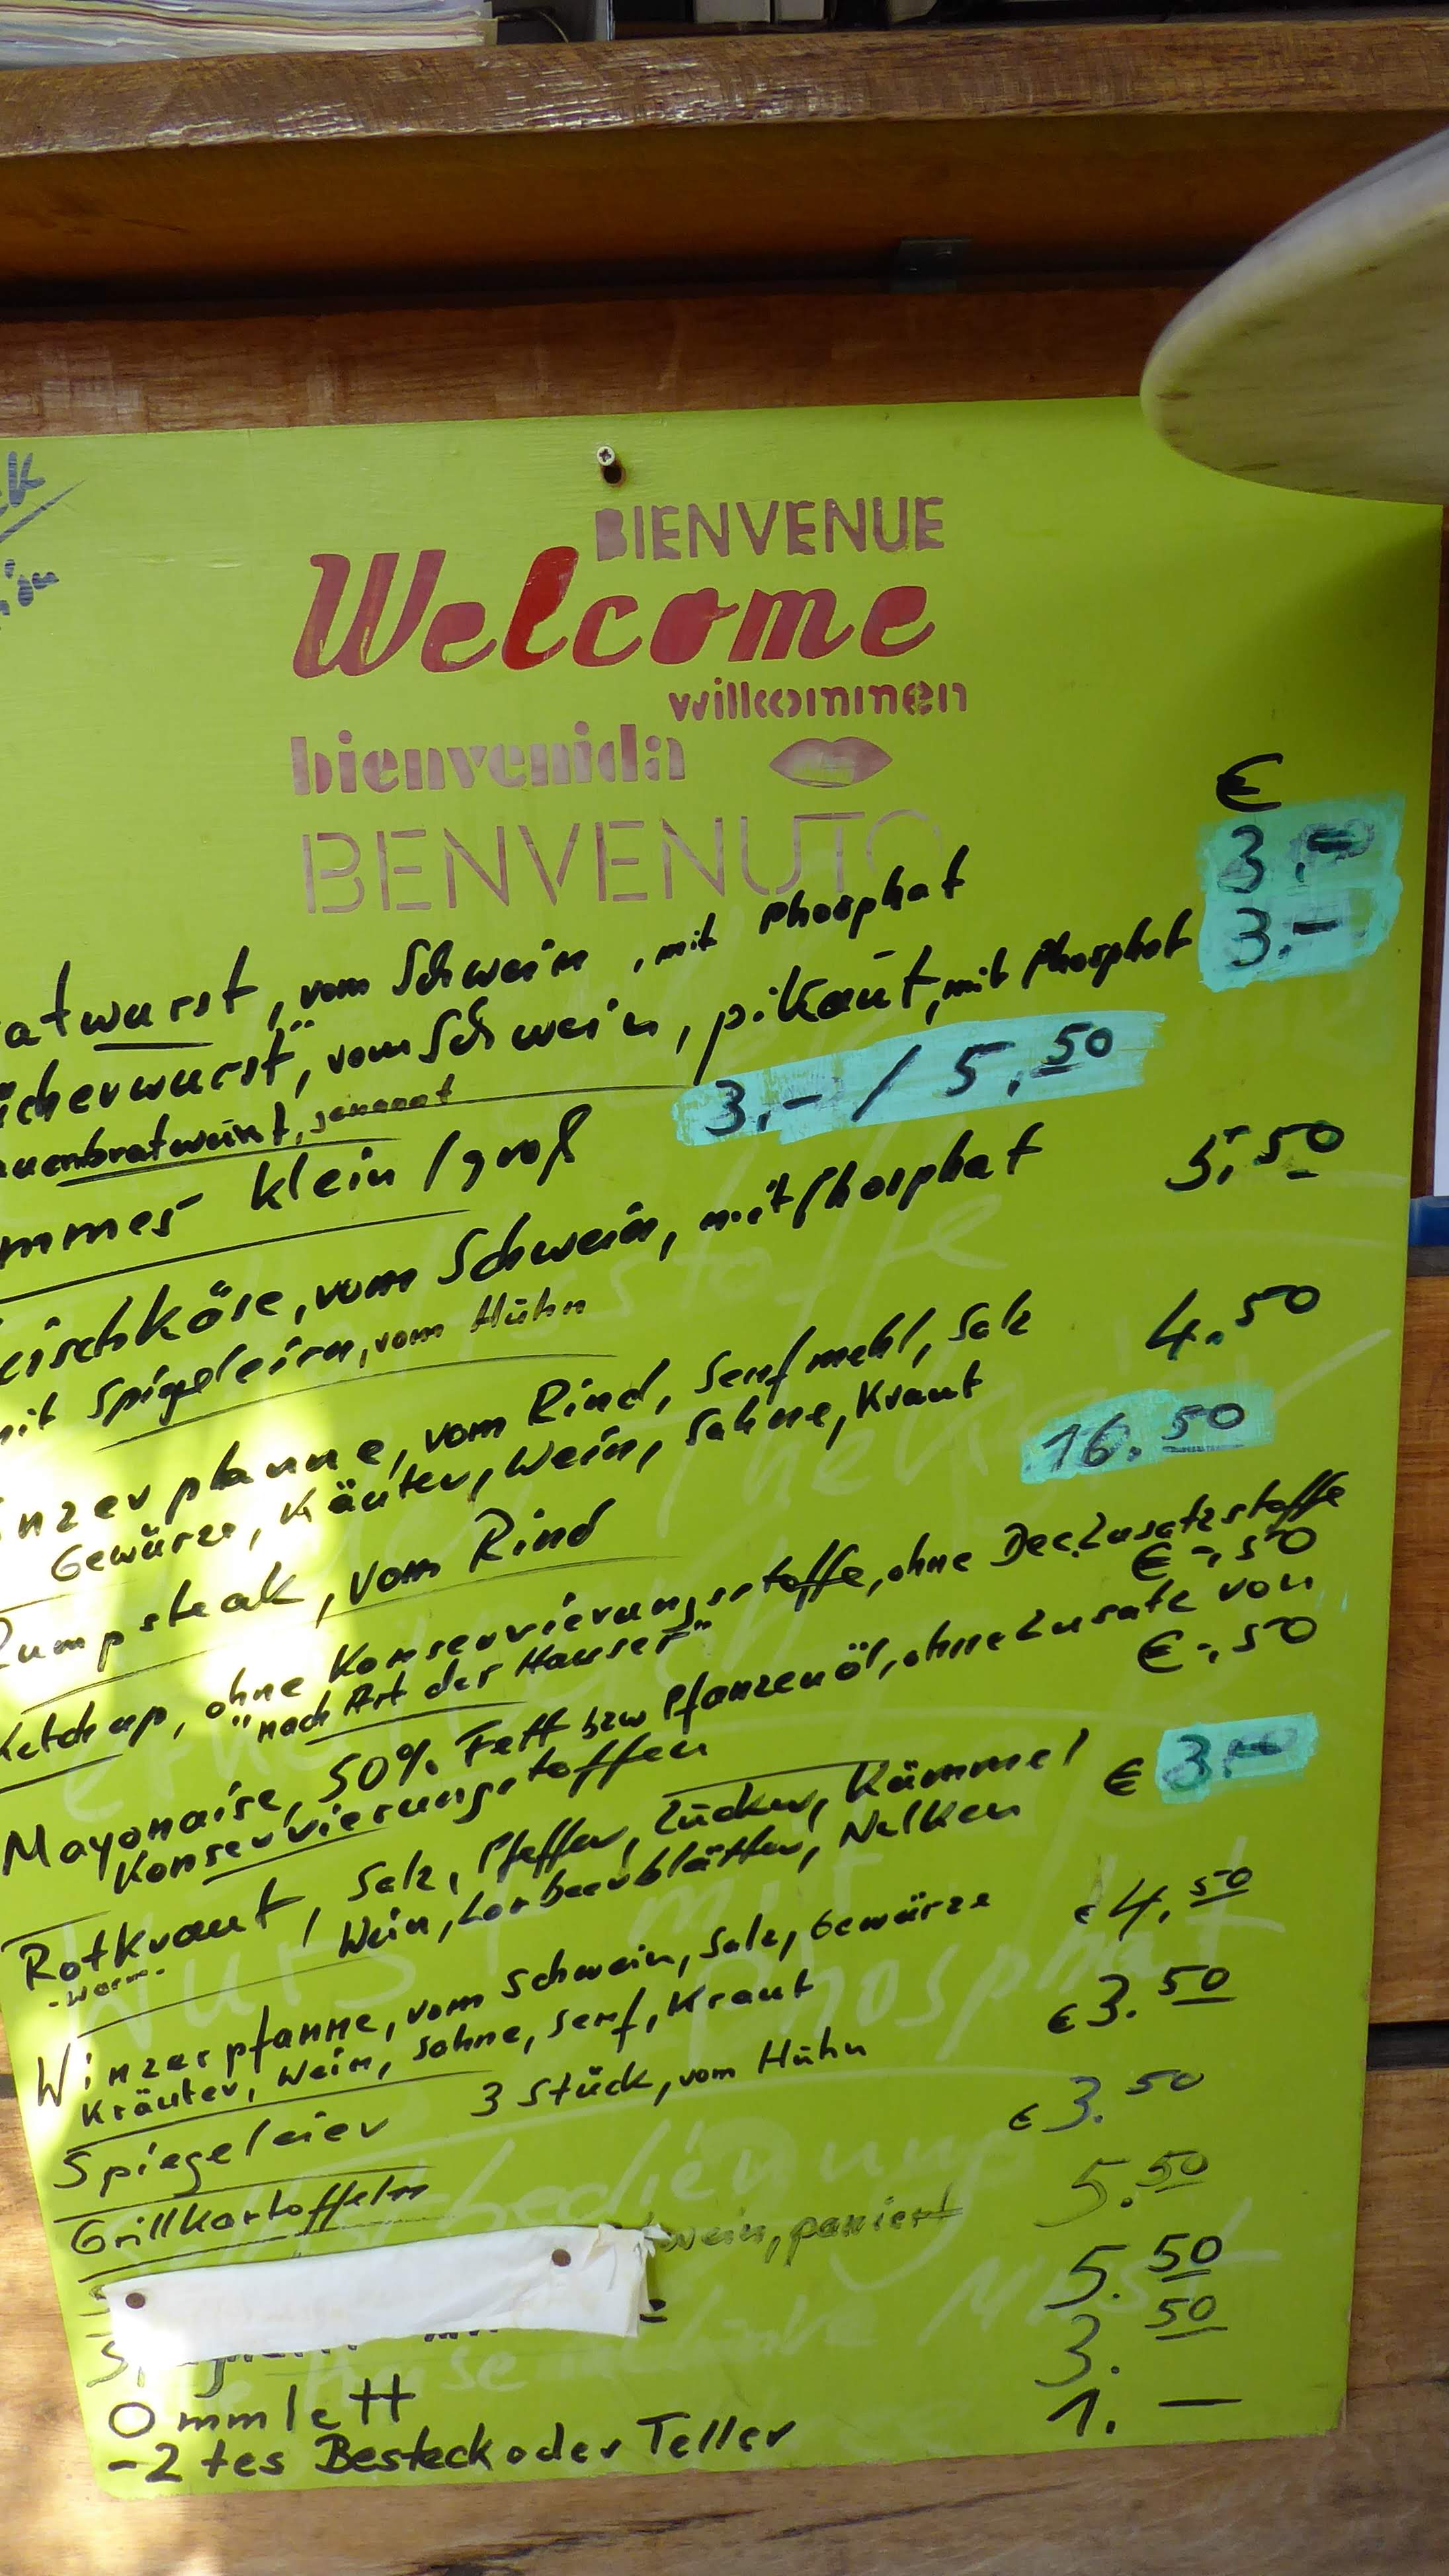 BIENVENUE
Welcome
willkommen
bienvenida
BENVENUTO
€
atwurst, vom Schwein, mit Phosphat 3.-
icherwurst", vom Schwein, pikant, mit Phosphat 3.-
auenbratwurst, genannt
mmes klein / groß 3.- / 5.50
eischkäse, vom Schwein, mit Phosphat 5.50
mit Spiegeleiern, vom Huhn
nzerpfanne, vom Rind, Senfmehl, Salz 4.50
Gewürze, Kräuter, Wein, Sahne, Kraut
Rumpsteak, vom Rind 16.50
Ketchup, ohne Konservierungsstoffe, ohne Dec.Zusatzstoffe
"nach Art der Hauses" € -,50
Mayonaise, 50% Fett bzw Pflanzenöl, ohne Zusatz von
Konservierungsstoffen € -,50
Rotkraut, Salz, Pfeffer, Zucker, Kümmel € 3.-
-warm- Wein, Lorbeerblätter, Nelken
Winzerpfanne, vom Schwein, Salz, Gewürze € 4.50
Kräuter, Wein, Sahne, Senf, Kraut
Spiegeleier 3 Stück, vom Huhn € 3.50
Grillkartoffeln € 3.50
wein, paniert 5.50
5.50
Ommlett 3.50
-2 tes Besteck oder Teller 1.—